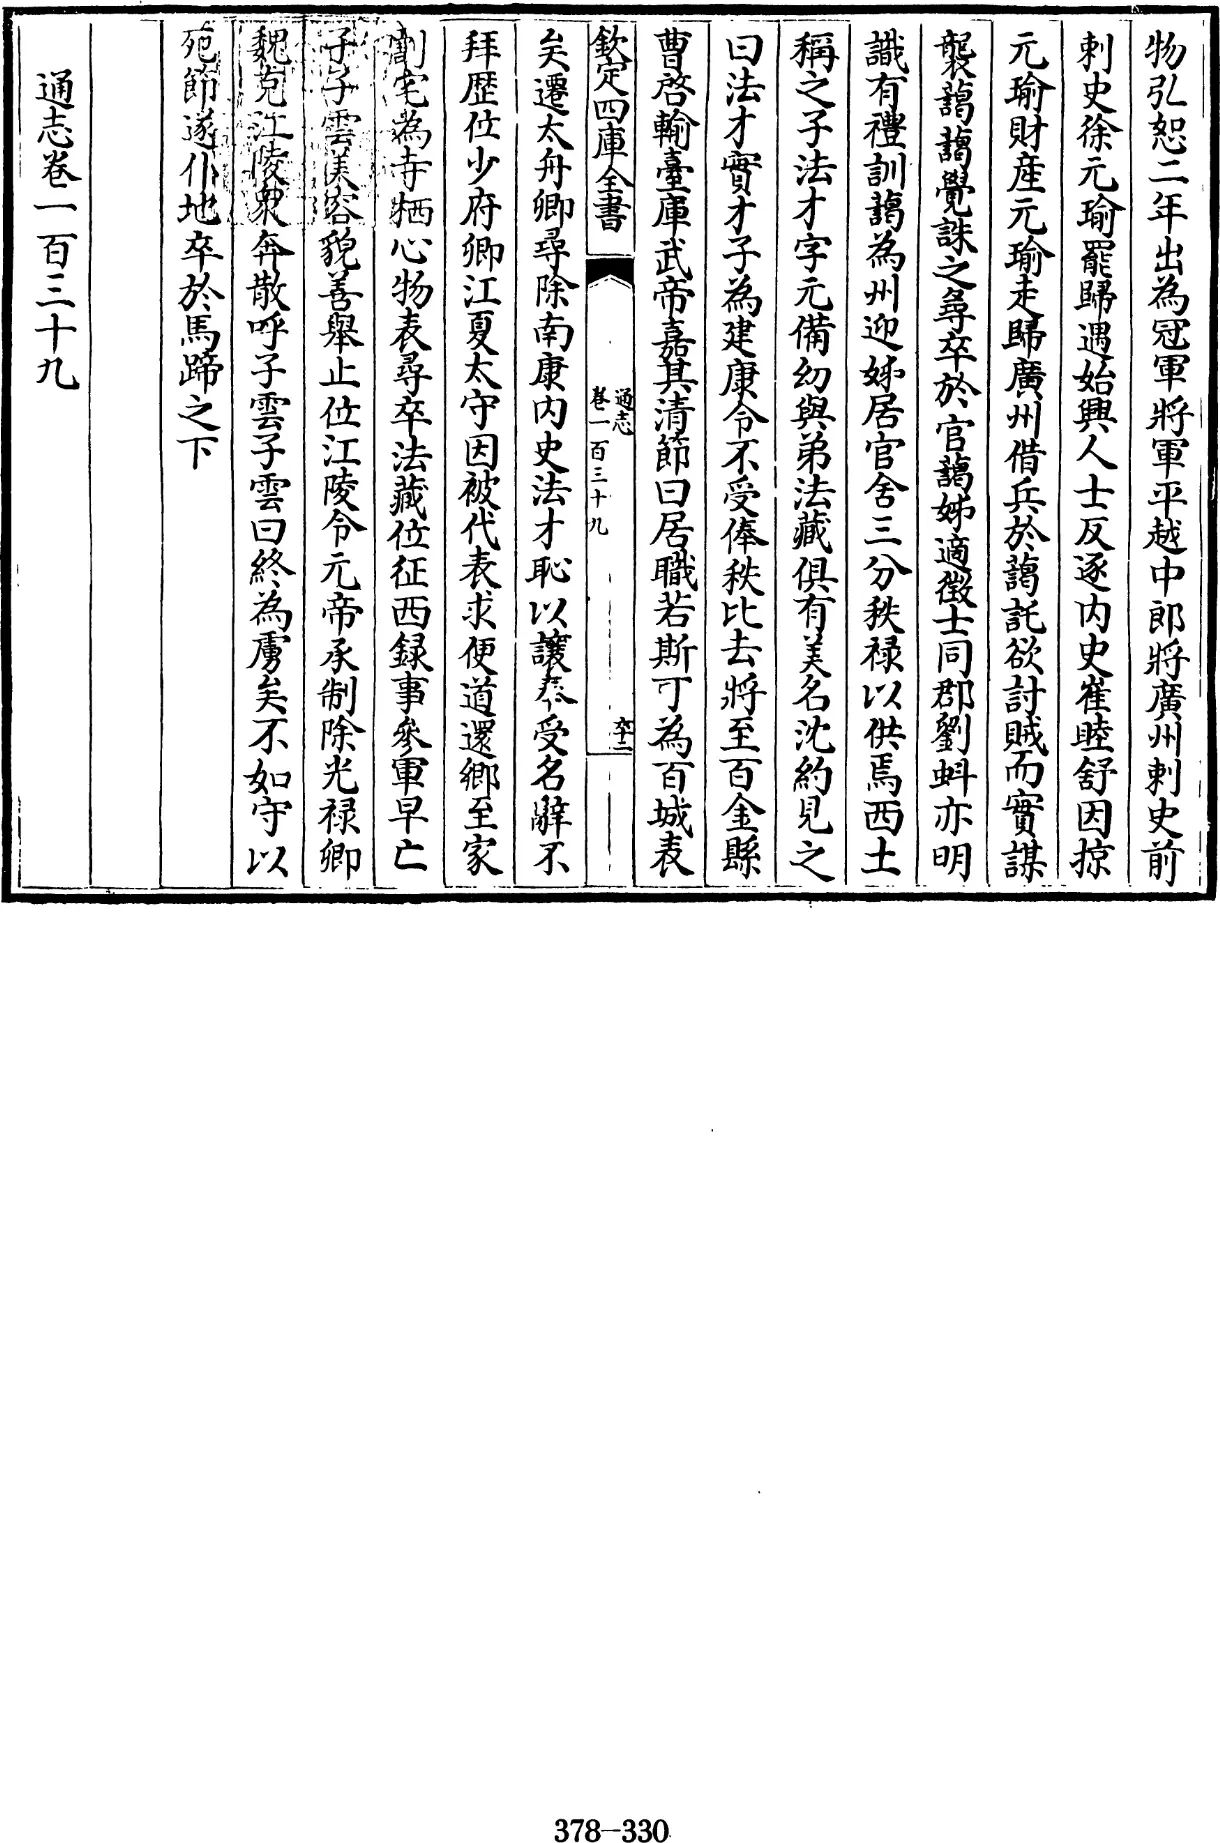 物弘恕二年出為冠軍將軍平越中郎將廣州刺史前
刺史徐元瑜罷歸遇始興人士反逐内史崔睦舒因掠
元瑜財産元瑜走歸廣州借兵於藹託欲討賊而實謀
襲藹藹覺誅之尋卒於官藹姊適徵士同郡劉虯亦明
識有禮訓藹為州迎姊居官舍三分秩禄以供焉西土
稱之子法才字元備幼與弟法藏俱有美名沈約見之
曰法才實才子為建康令不受俸秩比去將至百金縣
曹啓輸臺庫武帝嘉其清節曰居職若斯可為百城表
欽定四庫全書
通志
卷一百三十九
卒二
矣遷太舟卿尋除南康内史法才恥以讓奉受名辭不
拜歴位少府卿江夏太守因被代表求便道還鄉至家
割宅為寺栖心物表尋卒法藏位征西録事參軍早亡
子子雲美容貌善舉止位江陵令元帝承制除光禄卿
魏克江陵衆奔散呼子雲子雲曰終為虜矣不如守以
死節遂仆地卒於馬蹄之下
通志卷一百三十九
378-330